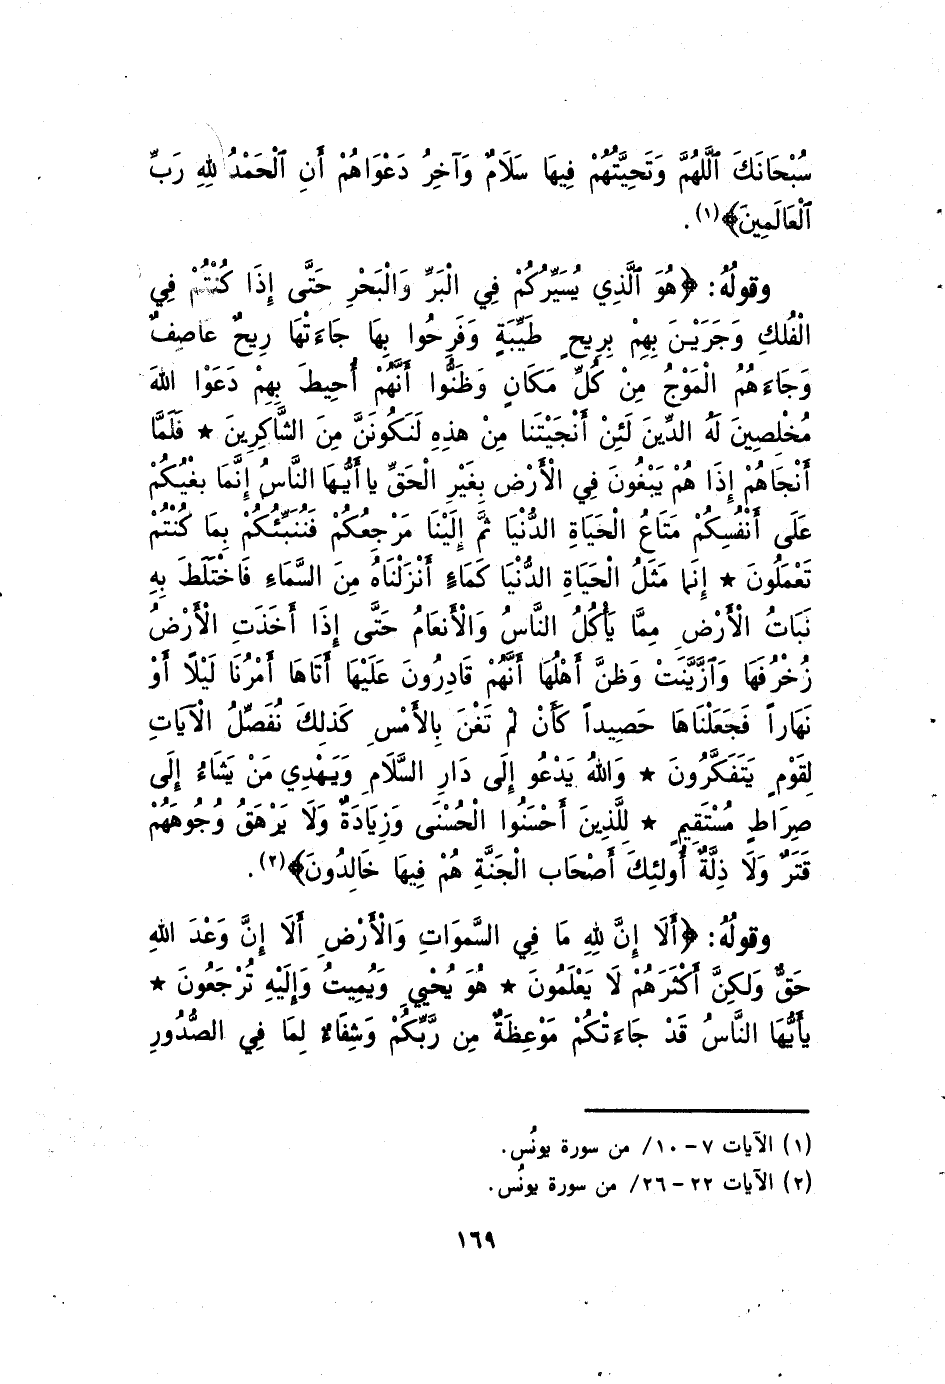 سُبْحَانَكَ ٱللَّهُمَّ وَتَحِيَّتُهُمْ فِيهَا سَلَامٌ وَآخِرُ دَعْوَاهُمْ أَنِ ٱلْحَمْدُ لِلهِ رَبِّ
ٱلْعَالَمِينَ﴾(١).
وقولُهُ: ﴿هُوَ ٱلَّذِي يُسَيِّرُكُمْ فِي الْبَرِّ وَالْبَحْرِ حَتَّى إِذَا كُنْتُمْ فِي
الْفُلكِ وَجَرَيْنَ بِهِمْ بِرِيحٍ طَيِّبَةٍ وَفَرِحُوا بِهَا جَاءَتْهَا رِيحٌ عَاصِفٌ
وَجَاءَهُمُ الْمَوْجُ مِنْ كُلِّ مَكَانٍ وَظَنُّوا أَنَّهُمْ أُحِيطَ بِهِمْ دَعَوْا اللهَ
مُخْلِصِينَ لَهُ الدِّينَ لَئِنْ أَنْجَيْتَنا مِنْ هذِهِ لَنَكُونَنَّ مِنَ الشَّاكِرِينَ ★ فَلَمَّا
أَنْجَاهُمْ إِذَا هُمْ يَبْغُونَ فِي الْأَرْضِ بِغَيْرِ الْحَقِّ يا أَيُّهَا النَّاسُ إِنَّمَا بغْيُكُمْ
عَلَى أَنْفُسِكُمْ مَتَاعُ الْحَيَاةِ الدُّنْيَا ثمَّ إِلَيْنَا مَرْجِعُكُمْ فَنُنَبِّئُكُمْ بِمَا كُنْتُمْ
تَعْمَلُونَ ★ إِنَّمَا مَثَلُ الْحَيَاةِ الدُّنْيَا كَمَاءٍ أَنْزَلْنَاهُ مِنَ السَّمَاءِ فَاخْتَلَطَ بِهِ
نَبَاتُ الْأَرْضِ مِمَّا يَأْكُلُ النَّاسُ وَالْأَنعَامُ حَتَّى إِذَا أَخَذَتِ الْأَرْضُ
زُخْرُفَهَا وَٱزَّيَّنَتْ وَظنَّ أَهْلُهَا أَنَّهُمْ قَادِرُونَ عَلَيْهَا أَتَاهَا أَمْرُنَا لَيْلًا أَوْ
نَهَاراً فَجَعَلْنَاهَا حَصِيداً كَأَنْ لَمْ تَغْنَ بِالأَمْسِ كَذلِكَ نُفَصِّلُ الْآيَاتِ
لِقَوْمٍ يَتَفَكَّرُونَ ★ وَاللهُ يَدْعُو إِلَى دَارِ السَّلَامِ وَيَهْدِي مَنْ يَشَاءُ إِلَى
صِرَاطٍ مُسْتَقِيمٍ ★ لِلَّذِينَ أَحْسَنُوا الْحُسْنَى وَزِيَادَةٌ وَلَا يَرْهَقُ وُجُوهَهُمْ
قَتَرٌ وَلَا ذِلَّةٌ أُولئِكَ أَصْحَاب الْجَنَّةِ هُمْ فِيهَا خَالِدُونَ﴾(٢).
وقولُهُ: ﴿أَلَا إِنَّ لِلهِ مَا فِي السَّموَاتِ وَالْأَرْضِ أَلَا إِنَّ وَعْدَ اللهِ
حَقٌّ وَلكِنَّ أَكْثَرَهُمْ لَا يَعْلَمُونَ ★ هُوَ يُحْيِي وَيُمِيتُ وَإِلَيْهِ تُرْجَعُونَ ★
يأَيُّهَا النَّاسُ قَدْ جَاءَتْكُمْ مَوْعِظَةٌ مِن رَّبِّكُمْ وَشِفَاءٌ لِمَا فِي الصُّدُورِ
(١) الآيات ٧ – ١٠/ من سورة يونُس.
(٢) الآيات ٢٢ – ٢٦/ من سورة يونُس.
١٦٩